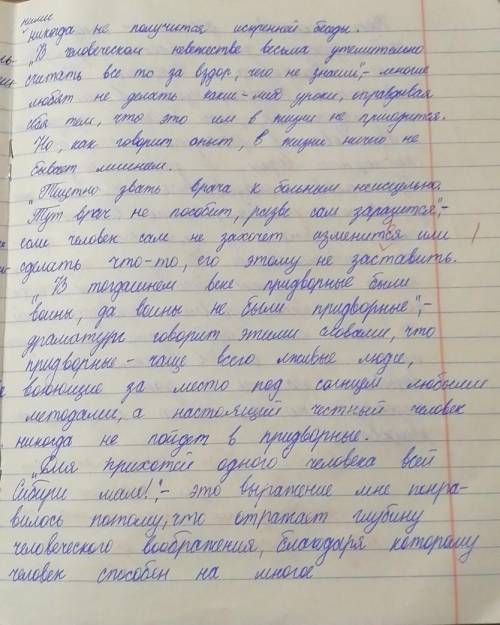 ними
никогда не получится искренней беседы.
"В человеческом невежестве весьма утешительно
считать все то за вздор, чего не знаешь",- многие
любят не делать какие-либо уроки, оправдывая
себя тем, что это им в жизни не пригодится.
Но, как говорит опыт, в жизни ничего не
бывает лишнем.
"Тщетно звать врача к больным неисцельно.
Тут врач не пособит, разве сам заразится",-
если человек сам не захочет изменится или
сделать что-то, его этому не заставить.
"В тогдашнем веке придворные были
воины, да воины не были придворные",-
драматург говорит этими словами, что
придворные - чаще всего лживые люди,
воюющие за место под солнцем любыми
методами, а настоящий честный человек
никогда не пойдет в придворные.
"Для прихотей одного человека всей
Сибири мало!",- это выражение мне понра-
вилось потому, что отражает глубину
человеческого воображения, благодаря которому
человек способен на многое